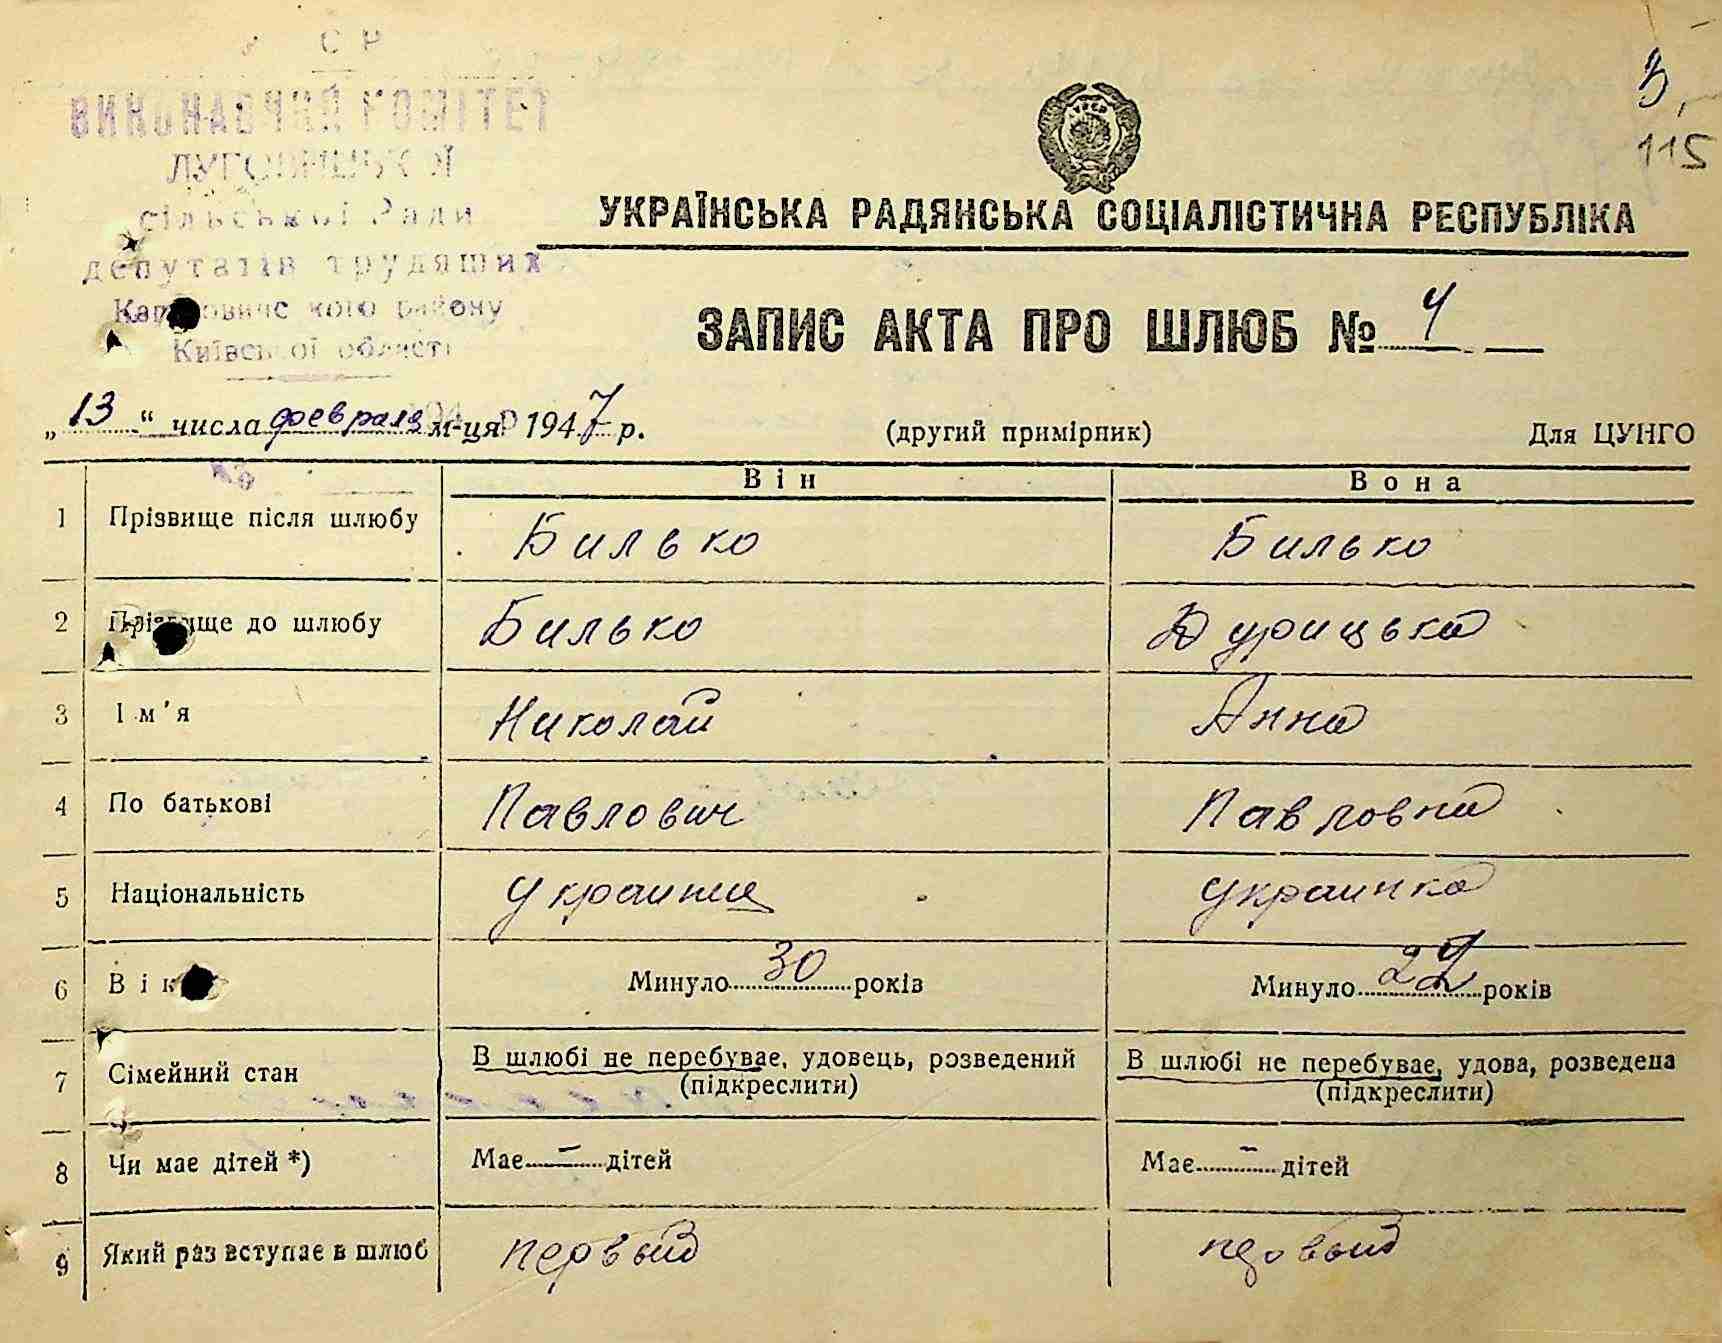 С Р
ВИКОНАВЧИЙ КОМІТЕТ
ЛУГОВИЦЬКОЇ
сільської Ради
депутатів трудящих
району
Київської області
115
УКРАЇНСЬКА РАДЯНСЬКА СОЦІАЛІСТИЧНА РЕСПУБЛІКА
ЗАПИС АКТА ПРО ШЛЮБ № 4
„13“ числа февраля м-ця 1947 р. (другий примірник) Для ЦУНГО
Він Вона
1 Прізвище після шлюбу Билько Билько
2 Прізвище до шлюбу Билько
3 Ім'я Николай Анна
4 По батькові Павлович Павловна
5 Національність Украинец Украинка
6 Вік Минуло 30 років Минуло 22 років
7 Сімейний стан В шлюбі не перебуває, удовець, розведений В шлюбі не перебуває, удова, розведена
(підкреслити) (підкреслити)
8 Чи має дітей *) Має — дітей Має — дітей
9 Який раз вступає в шлюб первый первый